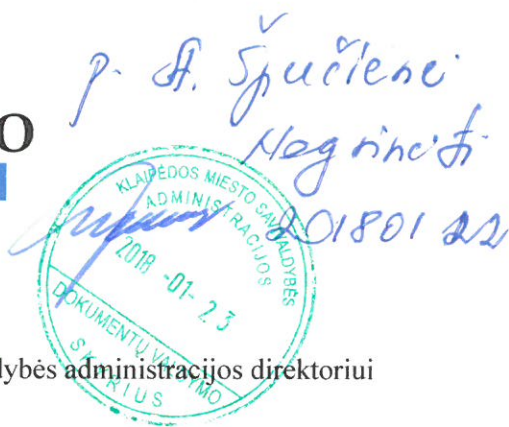 p. A. Špučienei
Nagrinėti
o
20180122
KLAIPĖDOS MIESTO SAVIVALDYBĖS
ADMINISTRACIJOS
2018 -01- 23
DOKUMENTŲ VALDYMO
SKYRIUS
dybės administracijos direktoriui